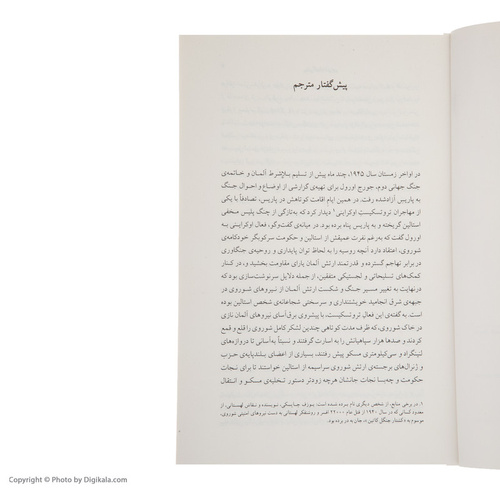 پیش‌گفتار مترجم
در اواخر زمستان سال ۱۹۴۵، چند ماه پیش از تسلیم بلاشرط آلمان و خاتمه‌ی
جنگ جهانی دوم، جورج اورول برای تهیه‌ی گزارشی از اوضاع و احوال جنگ
به پاریس آزادشده رفت. در همین ایام اقامت کوتاهش در پاریس، تصادفاً با یکی
از مهاجران تروتسکیست اوکراینی۱ دیدار کرد که به‌تازگی از چنگ پلیس مخفی
استالین گریخته و به پاریس پناه برده بود. در میانه‌ی گفت‌وگو، فعال اوکراینی به
اورول گفت که به‌رغم نفرت عمیقش از استالین و حکومت سرکوبگر خودکامه‌ی
او، اعتقاد دارد آنچه روسیه را به لحاظ توان پایداری و روحیه‌ی جنگاوری
در برابر تهاجم گسترده و قدرتمند ارتش آلمان یارای مقاومت بخشید و، در کنار
کمک‌های تسلیحاتی و لجستیکی متفقین، از جمله دلایل سرنوشت‌سازی بود که
درنهایت به تغییر مسیر جنگ و شکست ارتش آلمان از نیروهای شوروی در
جبهه‌ی شرق انجامید خویشتنداری و سرسختی شجاعانه‌ی شخص استالین بوده
است. به گفته‌ی این فعال تروتسکیست، با پیشروی برق‌آسای نیروهای آلمان نازی
در خاک شوروی، که ظرف مدت کوتاهی چندین لشکر کامل شوروی را قلع و قمع
کردند و صدها هزار سپاهیانش را به اسارت گرفتند و نسبتاً به‌آسانی تا دروازه‌های
لنینگراد و سی‌کیلومتری مسکو پیش رفتند، بسیاری از اعضای بلندپایه‌ی حزب
و ژنرال‌های برجسته‌ی ارتش شوروی سراسیمه از استالین خواستند تا برای نجات
حکومت و چه‌بسا نجات جانشان هرچه زودتر دستور تخلیه‌ی مسکو و انتقال
۱. در برخی منابع، از شخص دیگری نام برده شده است: یوزف چاپسکی، نویسنده و نقاش لهستانی، از
معدود کسانی که در سال ۱۹۴۰ از قتل عام ۲۲۰۰۰ افسر و روشنفکر لهستانی به دست نیروهای امنیتی شوروی،
موسوم به «کشتار جنگل کاتین»، جان به در برده بود.
Copyright © Photo by Digikala.com